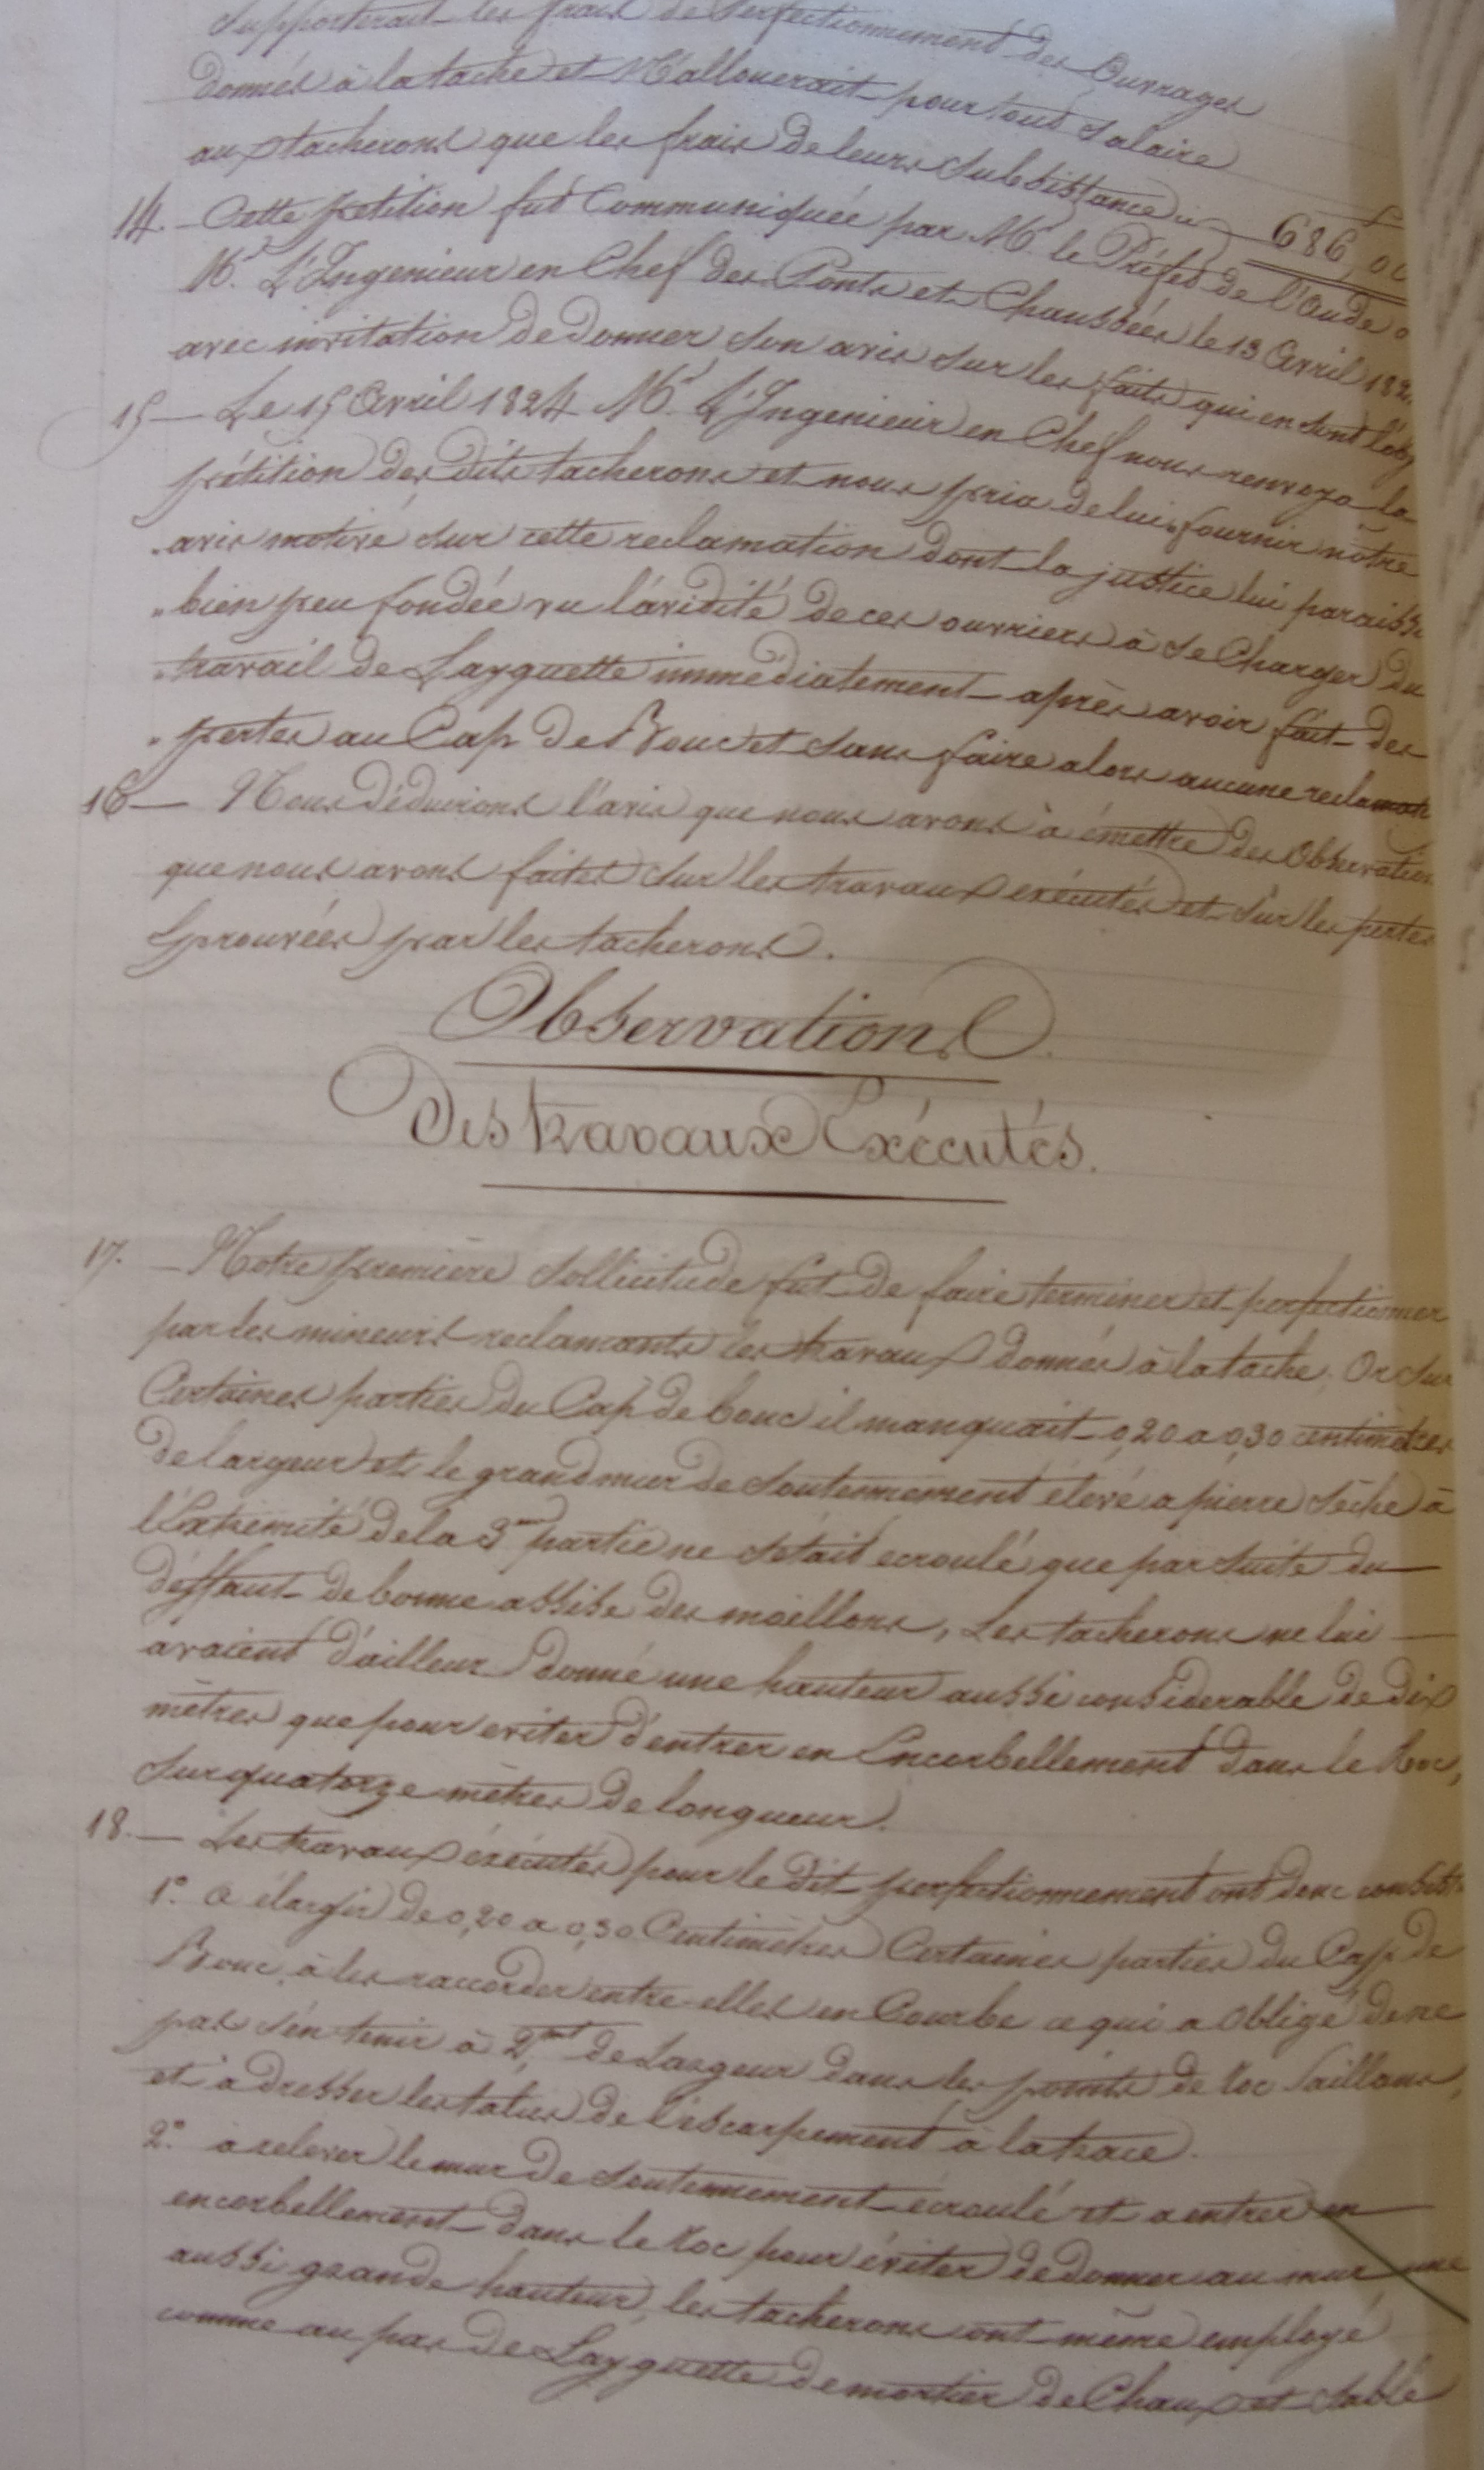 Supporterait les frais de Perfectionnement des Ouvrages
donnés à la tache et N'allouerait pour tout Salaire
aux tacherons que les frais de leurs Subsistance ci 686,00
14. — Cette petition fut Communiquée par Mr. le Préfet de l'Aude a
Mr. L'Ingenieur en Chef des Ponts et Chaussées le 13 Avril 182
avec invitation de donner son avis sur les faits qui en sont l'obj
15 — Le 15 Avril 1824 Mr. L'Ingenieur en Chef nous renvoya la
pétition des dits tacherons et nous pria de lui fournir notre
„ avis motivé sur cette reclamation dont la justice lui paraissa
„ bien peu fondée vu l'avidité de ces ouvriers à se Charger du
„ travail de Layguette immédiatement après avoir fait des
„ pertes au Cap de Bouc et sans faire alors aucune reclamati
16 — Nous déduirons l'avis que nous avons à émettre des Observation
que nous avons faites sur les travaux exécutés et sur les pertes
Eprouvées par les tacherons.
Observations
Des travaux Exécutés.
17. — Notre première sollicitude fut de faire terminer et perfectionner
par les mineurs reclamants les travaux donnés à la tache. Or sur
Certaines parties du Cap de bouc il manquait 0,20 a 0,30 centimètres
de largeur et le grand mur de soutennement élevé a pierre sèche à
l'Extrémité de la 3me partie ne s'était ecroulé que par suite du
déffaut de bonne assise des moëllons, Les tacherons ne lui
avaient d'ailleurs donné une hauteur aussi considerable de dix
mètres que pour eviter d'entrer en Encorbellement dans le Roc,
sur quatorze mètres de longueur.
18. — Les travaux éxécutés pour le dit perfectionnement ont donc consisté
1°. a élargir de 0,20 a 0,30 Centimètres Certaines parties du Cap de
Bouc, à les raccorder entre-elles en Courbe ce qui a Obligé de ne
pas s'en tenir à 2,mt de Largeur dans les points de Roc Saillans,
et à dresser les talus de l'escarpement à la trace.
2°. a relever le mur de soutennement écroulé et a entrer en
encorbellement dans le Roc pour éviter de donner au mur une
aussi grande hauteur, les tacherons ont même employé
comme au pas de Layguette de mortier de Chaux et sable